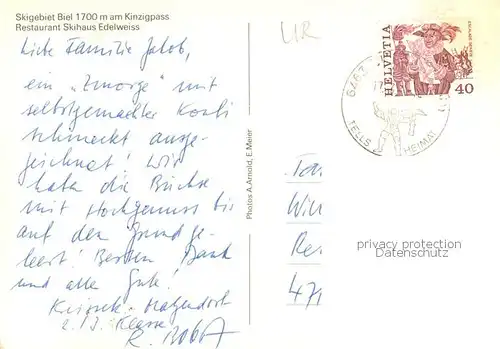 Skigebiet Biel 1700 m am Kinzigpass
Restaurant Skihaus Edelweiss
UR
Liebe Familie Jakob,
ein "Zmorge" mit
selbstgemachter Konfi
schmeckt ausge-
zeichnet! Wir
haben die Büchse
mit Hochgenuss bis
auf den Grund ge-
leert! Besten Dank
und alle Gute!
2./3. Klasse
R.
Photos A. Arnold, E. Meier
HELVETIA
40
TELLS HEIMAT
Fam
Wil
Re
471
privacy protection
Datenschutz